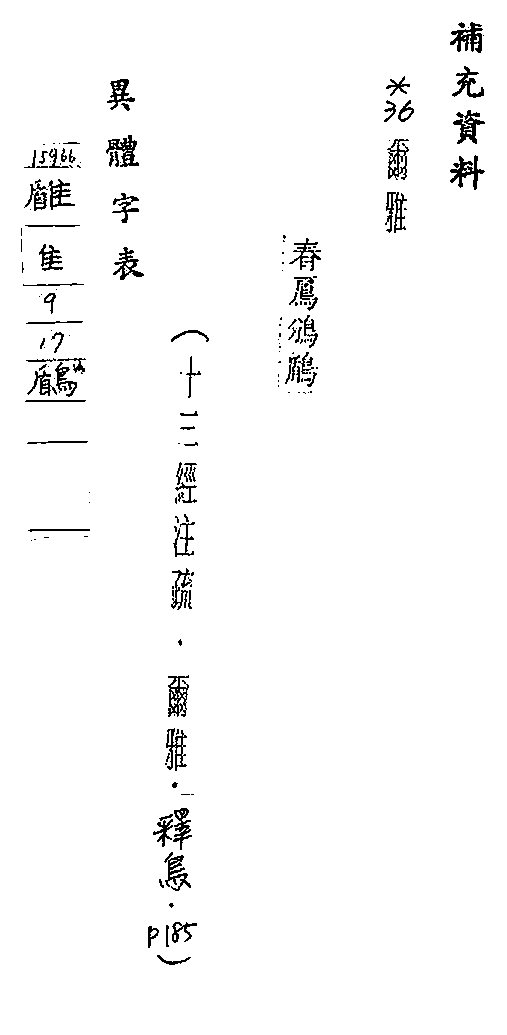 補充資料
*36 爾雅
春鳸鳻
(十三經注疏．爾雅．釋鳥．p185)
異體字表
15966
隹
9
17